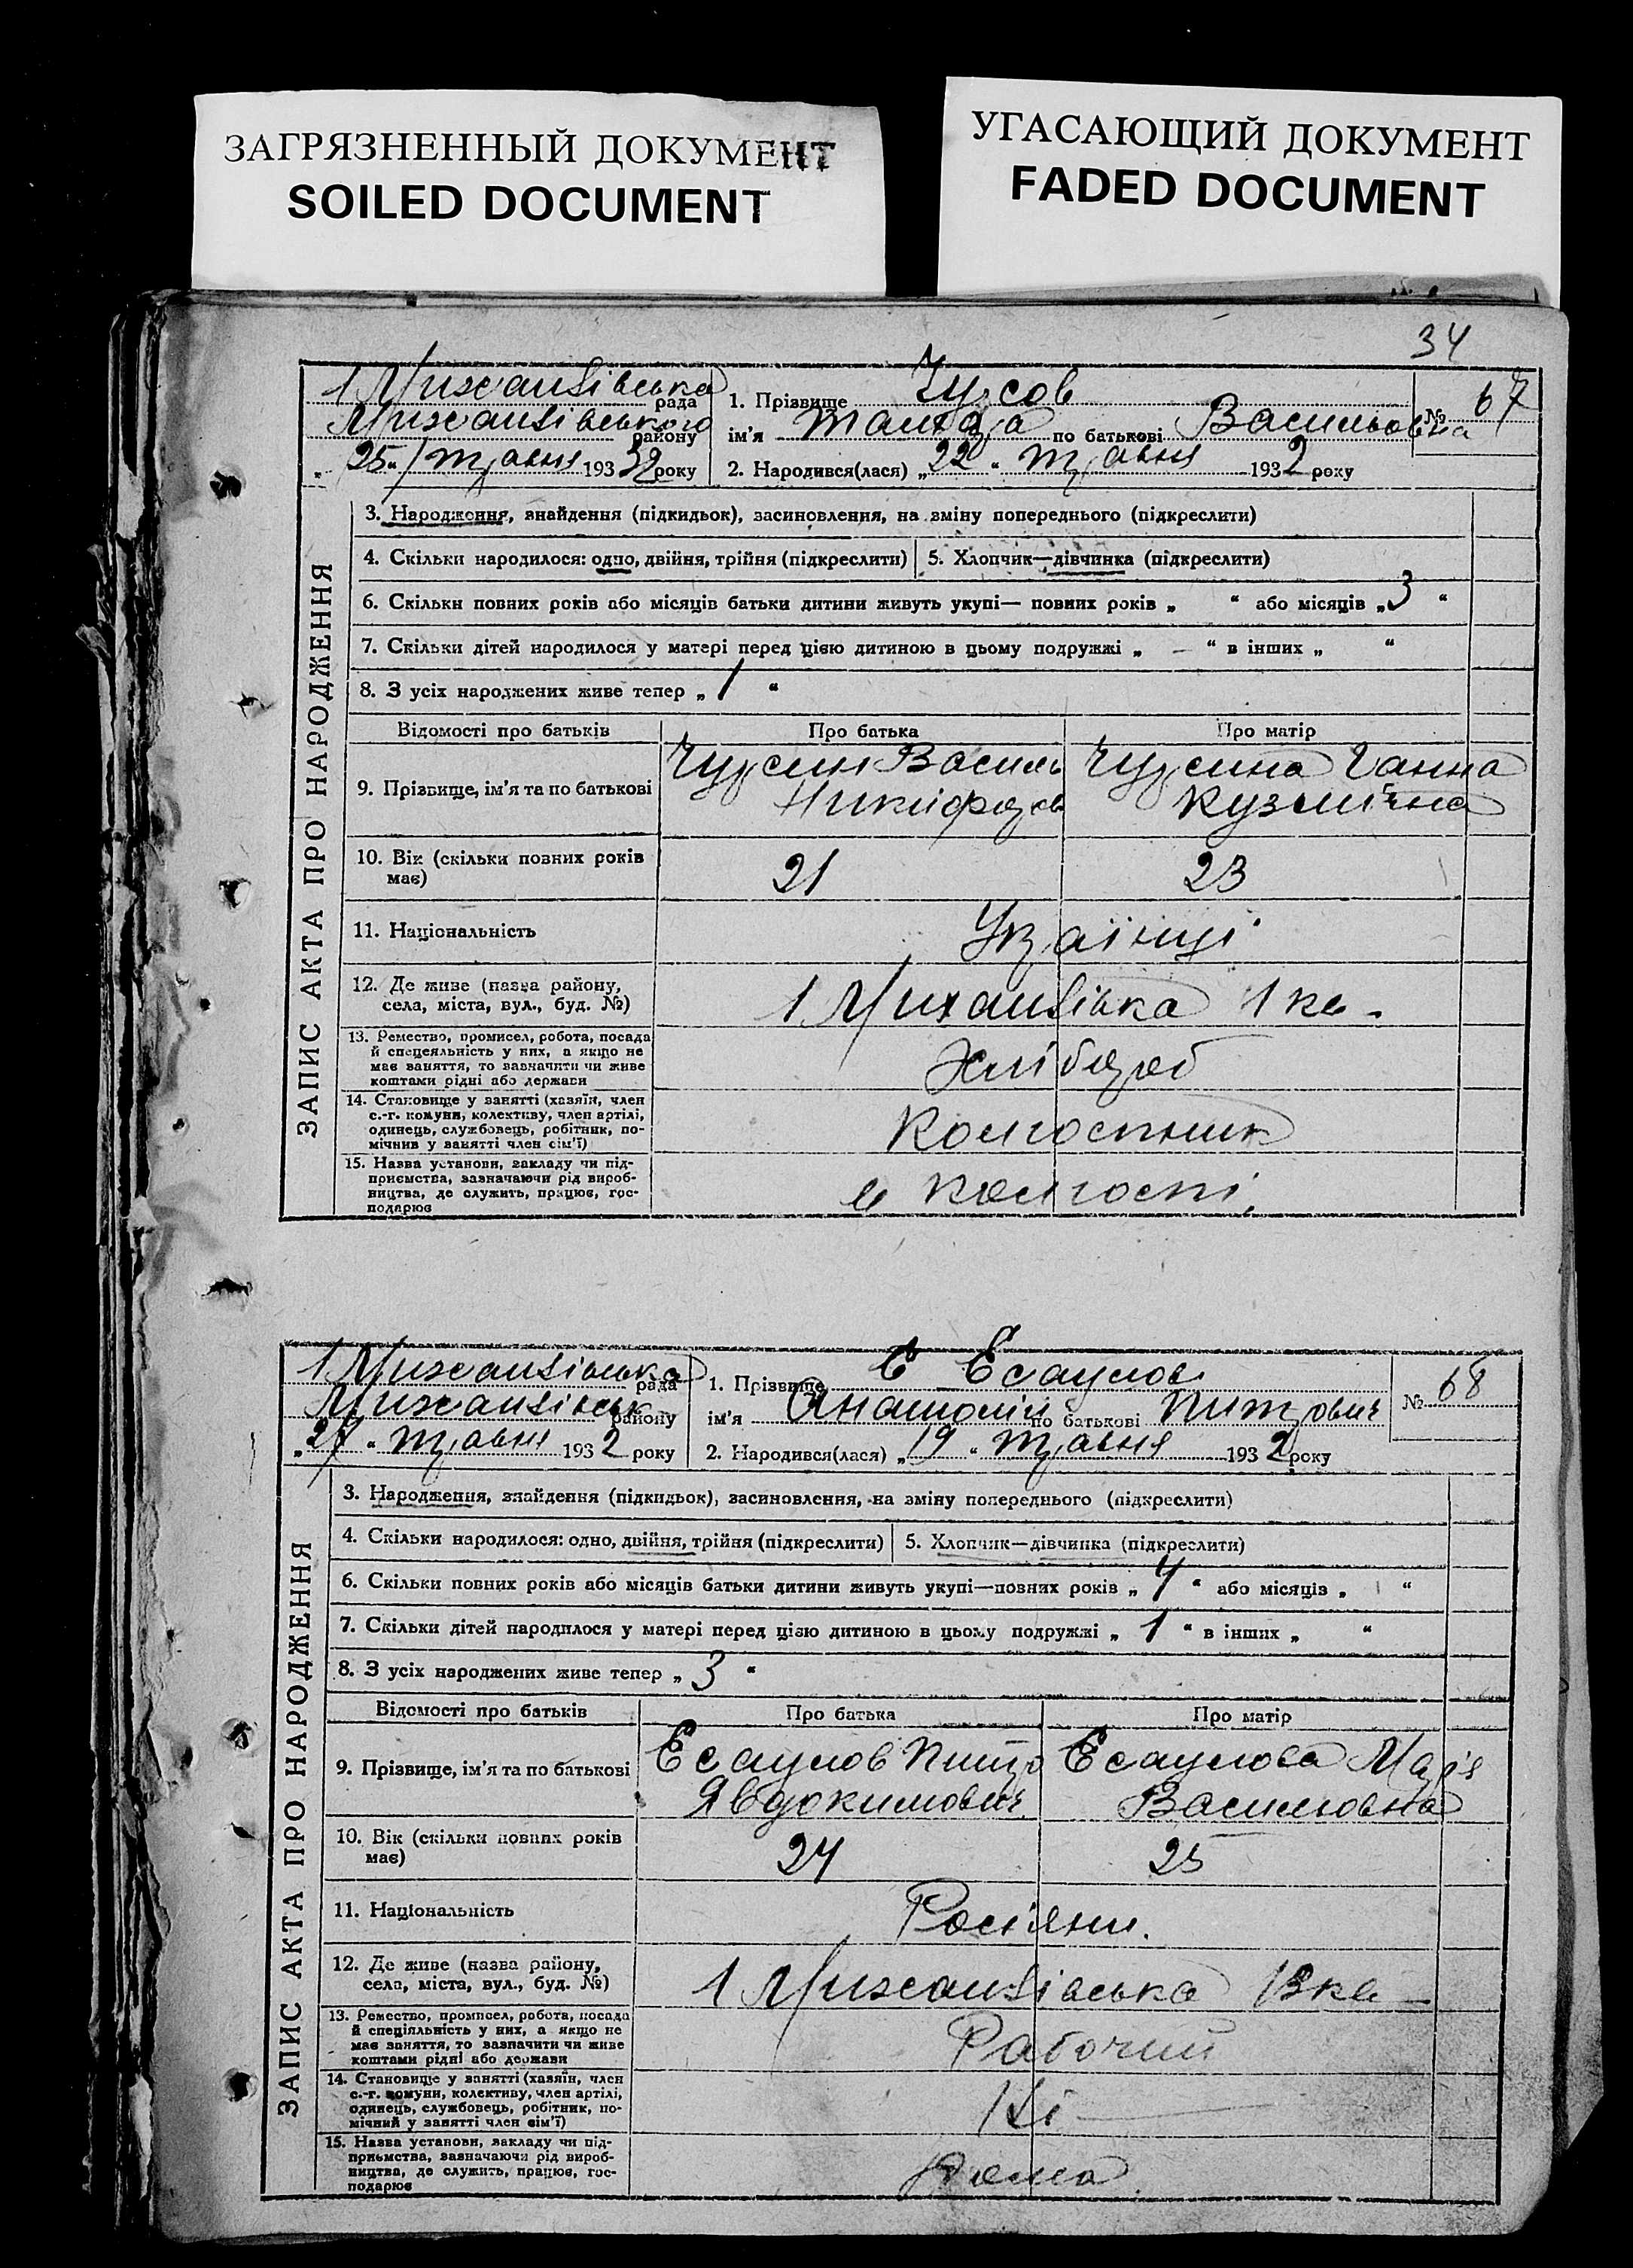 ЗАГРЯЗНЕННЫЙ ДОКУМЕНТ
SOILED DOCUMENT
УГАСАЮЩИЙ ДОКУМЕНТ
FADED DOCUMENT
34
ЗАПИС АКТА ПРО НАРОДЖЕННЯ
1 Михайлівська рада
Михайлівського району
"25" травня 1932 року
1. Прізвище
ім'я по батькові Васильовна
2. Народився(лася) „22" травня 1932 року
№ 67
3. Народження, знайдення (підкидьок), засиновлення, на зміну попереднього (підкреслити)
4. Скільки народилося: одно, двійня, трійня (підкреслити)
5. Хлопчик—дівчинка (підкреслити)
6. Скільки повних років або місяців батьки дитини живуть укупі— повних років „ " або місяців „3 "
7. Скільки дітей народилося у матері перед цією дитиною в цьому подружжі „ — " в інших „ "
8. З усіх народжених живе тепер „ 1 "
Відомості про батьків Про батька Про матір
9. Прізвище, ім'я та по батькові
Василь
Ганна
Кузмінна
10. Вік (скільки повних років
має)
21 23
11. Національність Українці
12. Де живе (назва району,
села, міста, вул., буд. №)
1 Михайлівка 1 кв.
13. Ремество, промисел, робота, посада
й спецеяльність у них, а якщо не
має заняття, то зазначити чи живе
коштами рідні або держави
Хлібороб
14. Становище у занятті (хазяїн, член
с.-г. комуни, колективу, член артілі,
одинець, службовець, робітник, по-
мічник у занятті член сім'ї)
Колгоспник
15. Назва установи, закладу чи під-
приємства, зазначаючи рід вироб-
ництва, де служить, працює, гос-
подарює
в колгоспі
ЗАПИС АКТА ПРО НАРОДЖЕННЯ
1 Михайлівська рада
Михайлівськ району
„27" травня 1932 року
1. Прізвище Е Есаулов
ім'я Анатолій по батькові Питрович
2. Народився(лася) „19" травня 1932 року
№ 68
3. Народження, знайдення (підкидьок), засиновлення, на зміну попереднього (підкреслити)
4. Скільки народилося: одно, двійня, трійня (підкреслити)
5. Хлопчик—дівчинка (підкреслити)
6. Скільки повних років або місяців батьки дитини живуть укупі—повних років „ 4 " або місяців „ "
7. Скільки дітей народилося у матері перед цією дитиною в цьому подружжі „ 1 " в інших „ "
8. З усіх народжених живе тепер „ 3 "
Відомості про батьків Про батька Про матір
9. Прізвище, ім'я та по батькові
Есаулов Питро
Явдокимович
Есаулова Марія
Василювна
10. Вік (скільки повних років
має)
24 25
11. Національність Росіяни.
12. Де живе (назва району,
села, міста, вул., буд. №)
1 Михайлівська 13 кв
13. Ремество, промисел, робота, посада
й спеціяльність у них, а якщо не
має заняття, то зазначити чи живе
коштами рідні або держави
Рабочий
14. Становище у занятті (хазяїн, член
с.-г. комуни, колективу, член артілі,
одинець, службовець, робітник, по-
мічний у занятті член сім'ї)
Ні
15. Назва установи, закладу чи під-
приємства, зазначаючи рід вироб-
ництва, де служить, працює, гос-
подарює
Дома